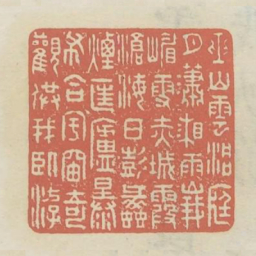 巫山雲洞庭
月瀟湘雨峨
嵋雪赤城霞
滄海日彭蠡
煙匡廬瀑
布合宇宙奇
觀供我臥游